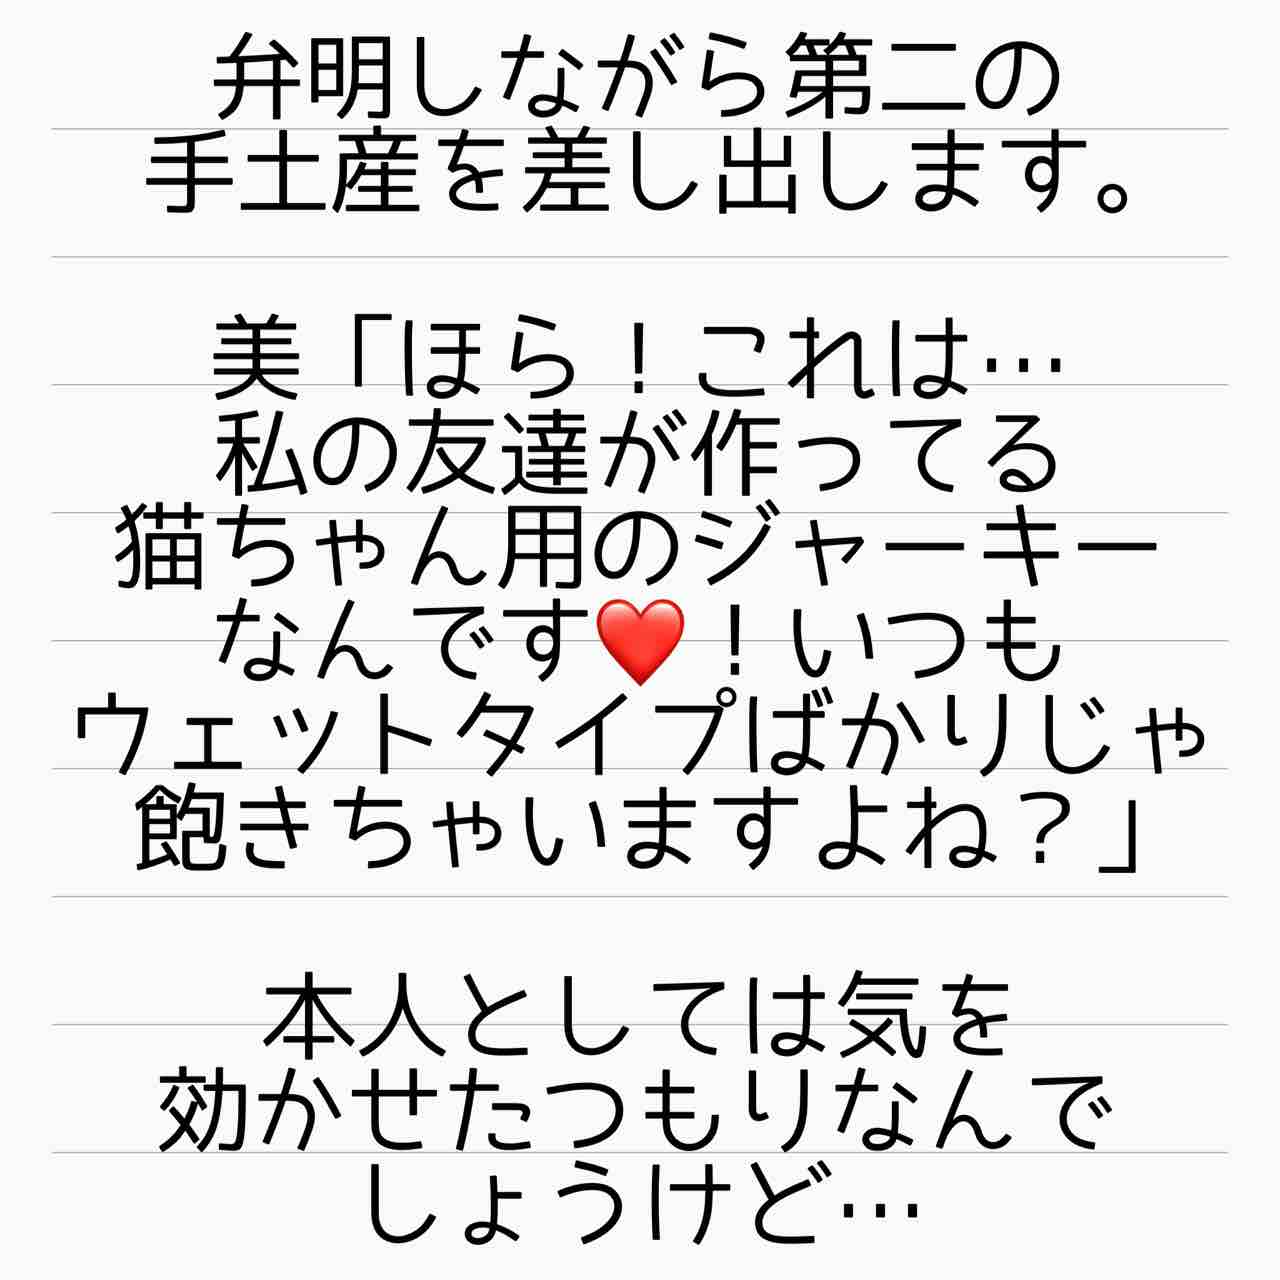 弁明しながら第二の
手土産を差し出します。
美「ほら！これは…
私の友達が作ってる
猫ちゃん用のジャーキー
なんです❤️！いつも
ウェットタイプばかりじゃ
飽きちゃいますよね？」
本人としては気を
効かせたつもりなんで
しょうけど…